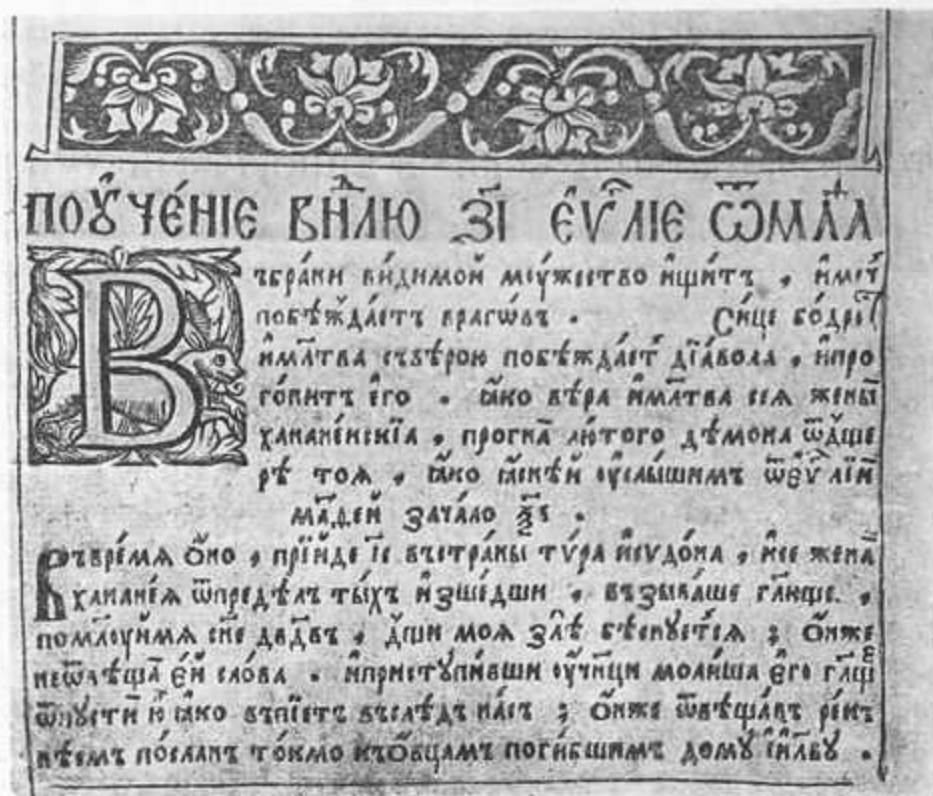 ПОꙊЧЕ́НІЕ ВНⷣЛЮ ЗІ҃ Е҆Ѵⷢ҇ЛІЕ ѾМАⷴ҇А
Въбрани ви́димой моужество и҆щитъ , и҆мо́у
побѣжда́етъ врагѡ́въ . Си́це бо́дро
и҆мл҃тва съвѣ́рою побѣжда́етъ дїа́вола , и҆про
го́нитъ є҆го . ꙗ҆ко вѣ́ра и҆мл҃тва сея жены̀
ханане́йскїа , прогна̀ лю́того де́мона ѿдще
рѐ тоя , ꙗ҆ко ꙗ҆снѣ́й оу҆слы́шимъ ѿеѵⷢ҇лїй
Маⷴ҇ѳей зача́ло ѯ҃в .
Въвре́мя о҆́но , прїи́де і҆с въстра́ны ту́ра и҆сѵдо́на , и҆се жена̀
ханане́я ѿпредѣ́лъ ты́хъ и҆зше́дши , възыва́ше гл҃юще ,
поми́лоуймя сн҃е дв҃двъ , дщ҃и моя злѣ̀ бѣсну́ется ; о҆́нже
неѿвѣща̀ е҆́й сло́ва . и҆присту́пивши оу҆ч҃нци моли́ша е҆го̀ гл҃ще
ѿпустѝ ю҆̀ ꙗ҆ко въпїе́тъ въслѣ́дъ на́съ ; о҆́нже ѿвѣща́въ речѐ
нѣ́смъ по́сланъ то́кмо къо҆вца́мъ поги́бшимъ до́му і҆и҃лву .